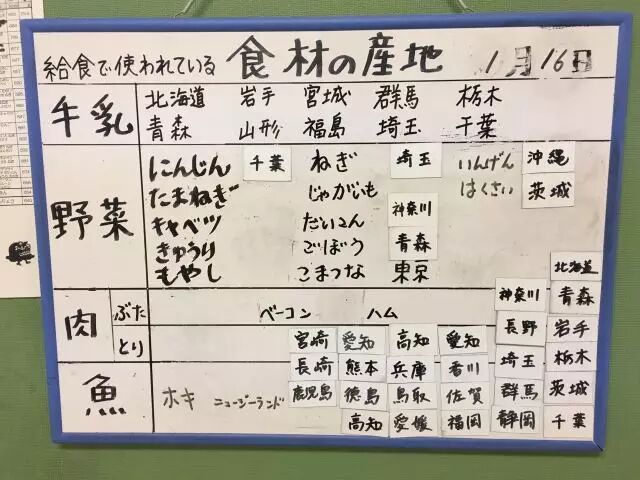 給食で使われている 食材の産地 1月16日
牛乳 北海道 岩手 宮城 群馬 栃木
青森 山形 福島 埼玉 千葉
野菜
にんじん 千葉 ねぎ 埼玉 いんげん 沖縄
たまねぎ じゃがいも はくさい 茨城
キャベツ だいこん 神奈川
きゅうり ごぼう 青森
もやし こまつな 東京
肉 ぶた ベーコン ハム
とり
魚 ホキ ニュージーランド
北海道
神奈川 青森
長野 岩手
宮崎 愛知 高知 愛知 埼玉 栃木
長崎 熊本 兵庫 香川 群馬 茨城
鹿児島 徳島 鳥取 佐賀 静岡 千葉
高知 愛媛 福岡